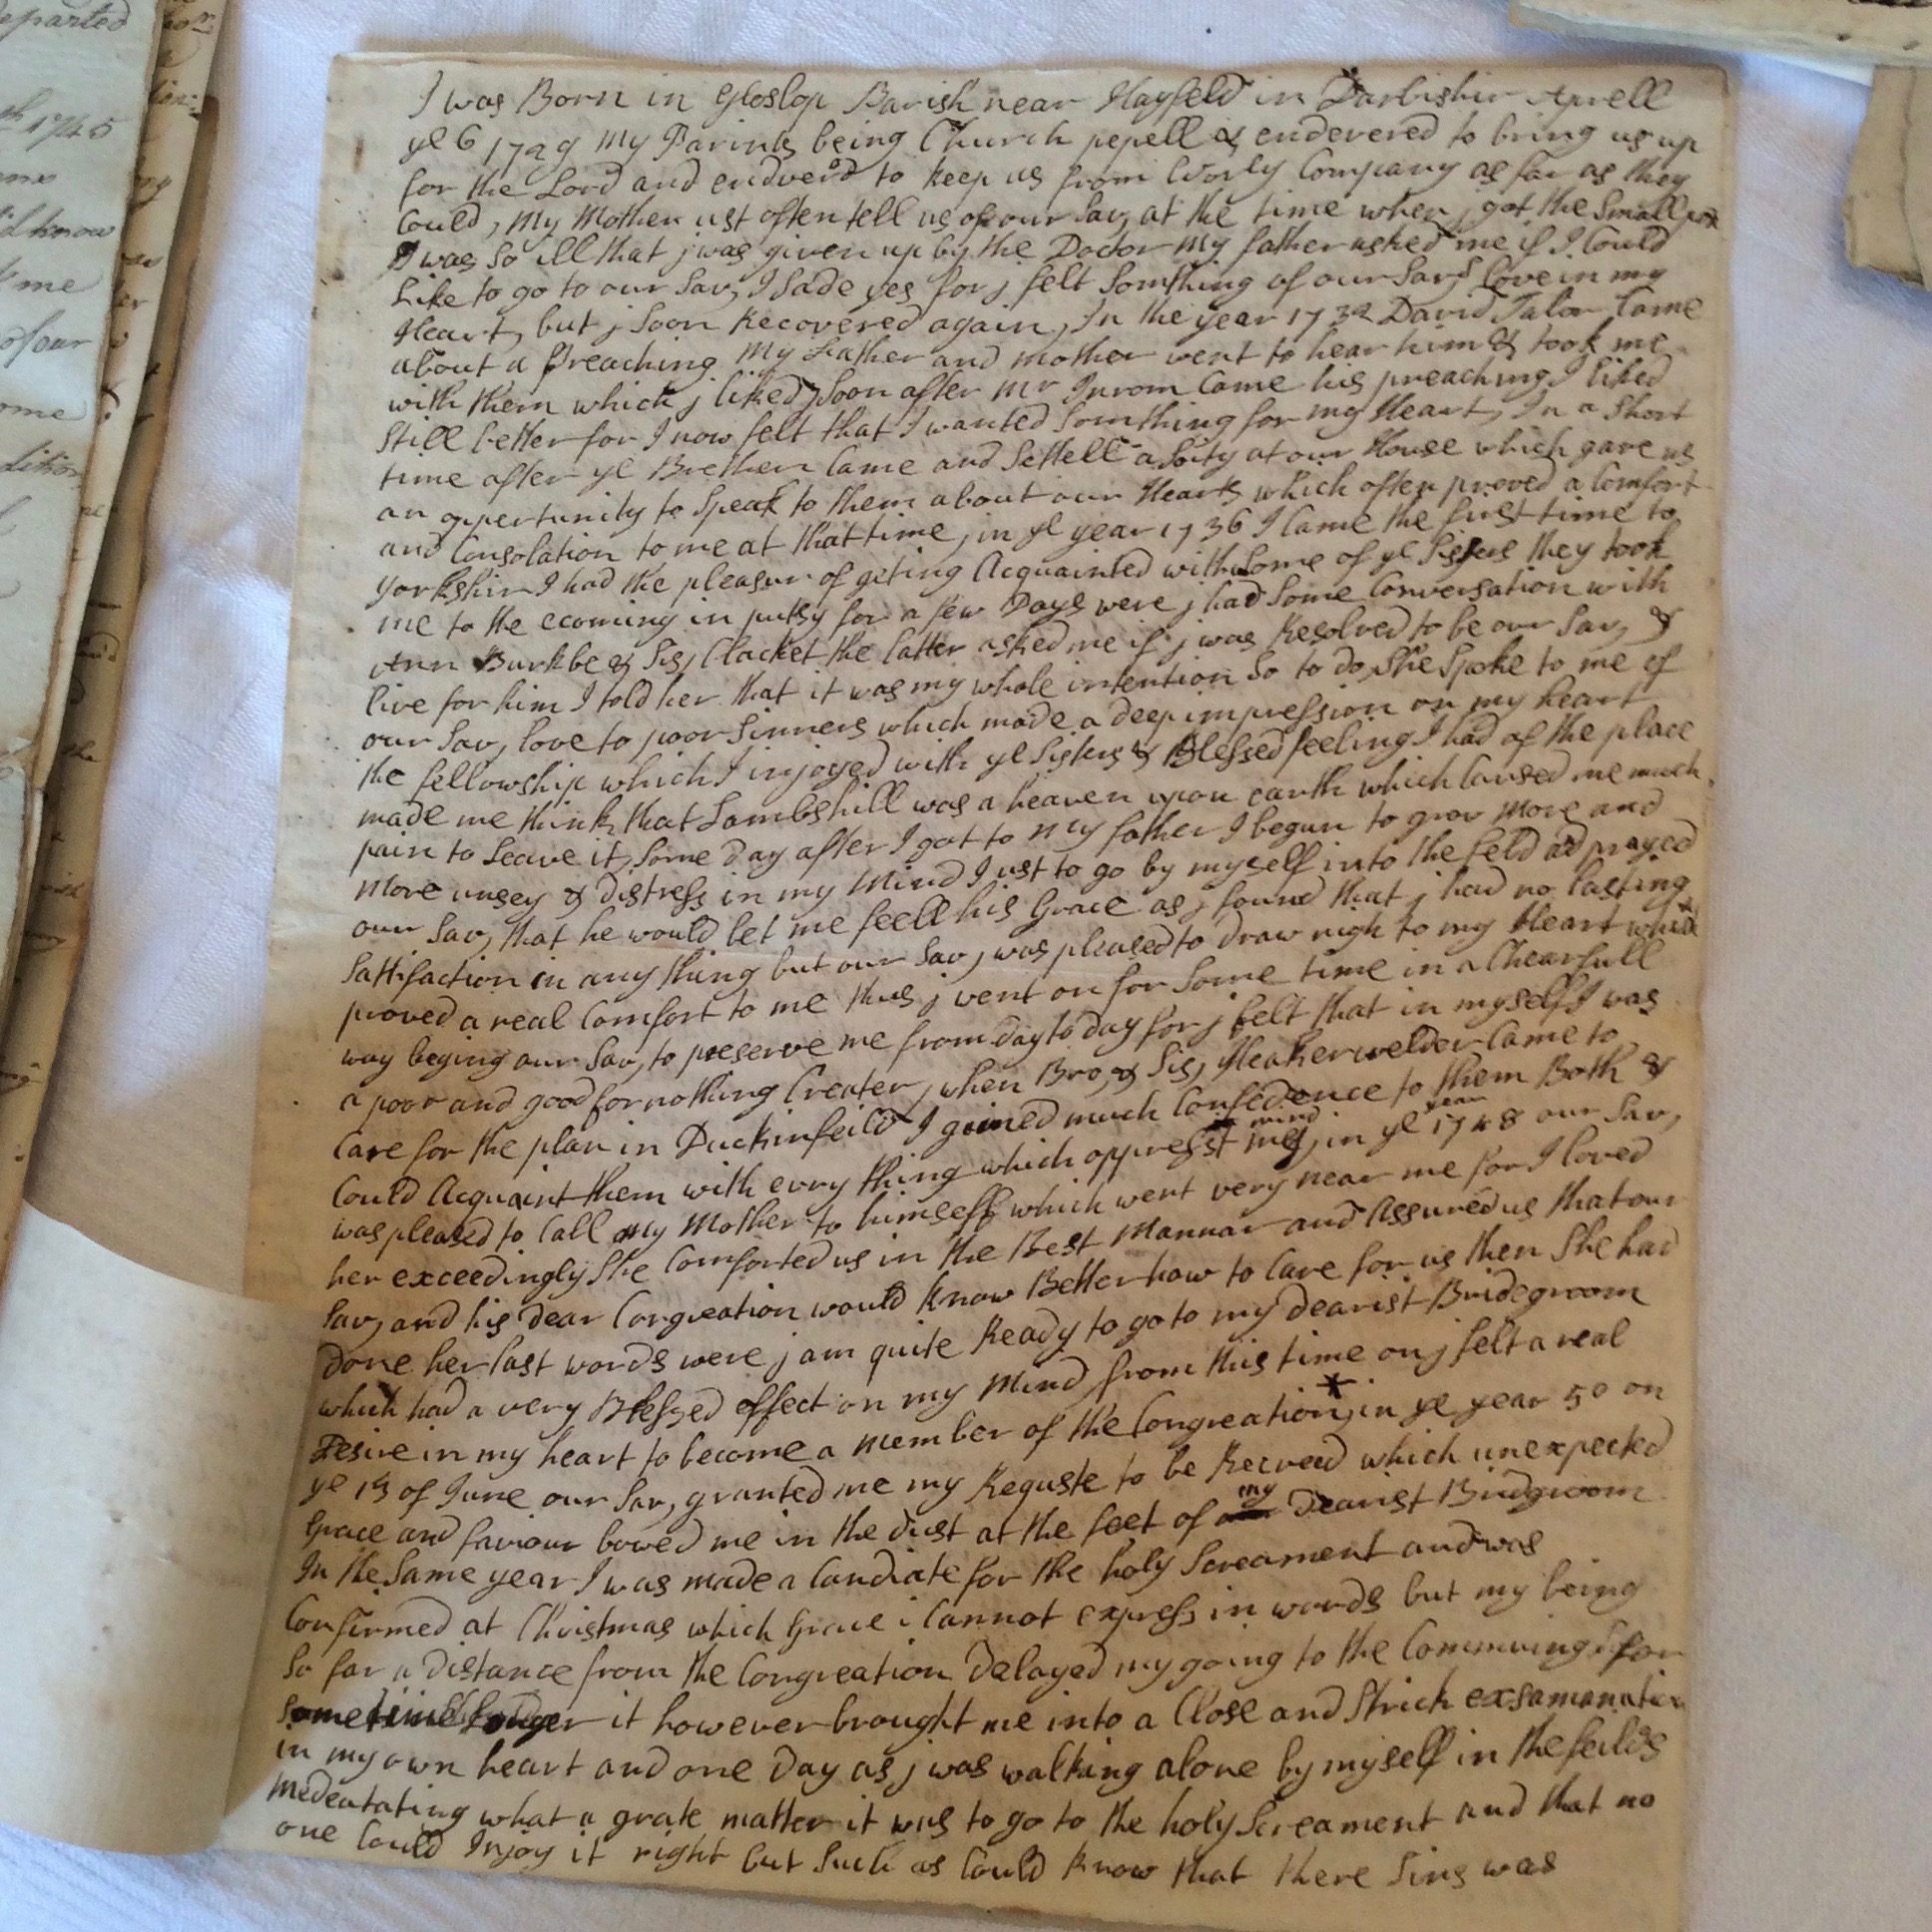 eparted
1745
d know
me
of our
ome
I was Born in Gloslop Parish near Hayfeld in Darbishir Aprell
ye 6 1729 My Parints being Church pepell & endevered to bring us up
for the Lord and endverd to keep us from Worly Company as far as they
Could, My Mother ust often tell us of our Sav, at the time when j got the Small pox
I was so ill that j was given up by the Doctor My father asked me if I Could
Like to go to our Sav, I Sade yes for j felt Somthing of our Savs Love in my
Heart, but j Soon Recovered again, In the year 1732 David Talor Came
about a Preaching My Father and mother went to hear him & took me
with them which j liked, Soon after Mr Inrom Came his preaching I liked
Still better for I now felt that I wanted Somthing for my Heart, In a Short
time after ye Brethen Came and Settell a Soity at our House which gave us
an oppertunity to Speak to them about our Hearts which often proved a Comfort
and Consolation to me at that time, in ye year 1736 I Came the first time to
Yorkshir I had the pleasur of geting Acquainted with Some of ye Sisters they took
me to the ecoming in putsy for a few Days were j had Some Conversation with
Ann Burkbe & Sis, Clacket the latter asked me if j was Resolved to be our Sav, &
live for him I told her that it was my whole intention So to do She Spoke to me of
our Sav, love to poor Sinners which made a deep impression on my heart
the fellowship which I injoyed with ye Sisters & Blessed feeling I had of the place
made me think that Lambshill was a heaven upon earth which Caused me much
pain to Leave it, Some day after I got to my father I begun to grow More and
More unsey & distress in my Mind I ust to go by myself into the feld ad prayed
our Sav, that he would let me feell his Grace as j found that j had no lasting
Sattifaction in any thing but our Sav, was pleased to draw nigh to my Heart which
proved a real Comfort to me thus j went on for Some time in a Chearfull
way beging our Sav, to preserve me from day to day for j felt that in myself I was
a poor and good for nothing Creater, when Bro, & Sis, Heakerwelder Came to
Care for the plan in Duckinfeild I goined much Confedence to them Both &
mind year
Could Acquaint them with evry thing which opprest my, in ye 1748 our Sav,
was pleased to Call my Mother to himself which went very near me for I loved
her exceedingly She Comforted us in the Best Mannar and Assured us that our
Sav, and his dear Congreation would know Better how to Care for us then She had
done her last words were j am quite Ready to go to my dearist Bridegroom
which had a very Blessed effect on my Mind, from this time on j felt a real
Desire in my heart to become a member of the Congreation, in ye year 50 on
ye 13 of June our Sav, granted me my Reguste to be Receved which unexpected
my
Grace and faviour bowed me in the dust at the feet of Dearist Bridgroom
In the Same year I was made a Candiate for the holy Screament and was
Confirmed at Christmas which Grace i Cannot express in words but my being
So far a distance from the Congreation Delayed my going to the Communing for
Some time Longer it however brought me into a Close and Strick exsamanation
in my own heart and one Day as j was walking alone by myself in the feilds
medeatating what a grate matter it was to go to the holy Screament and that no
one Could Injoy it right but Such as Could know that there Sins was